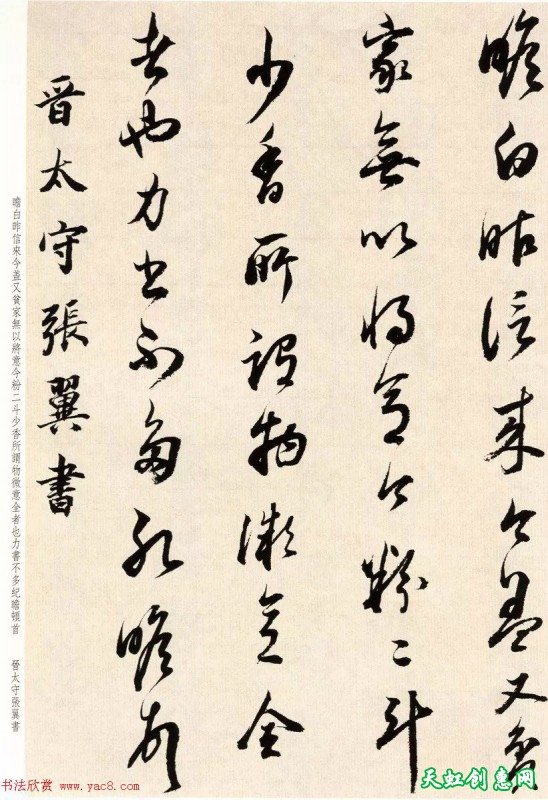 瞻白昨信来今盖又貧
家無以将意今粉二斗
少香所謂物微意全
者也力書不多紀瞻頓
晋太守張翼書
瞻白昨信來今盖又貧家無以將意今粉二斗少香所謂物微意全者也力書不多紀瞻頓首 晉太守張翼書
书法欣赏 www.yac8.com
天虹创惠网